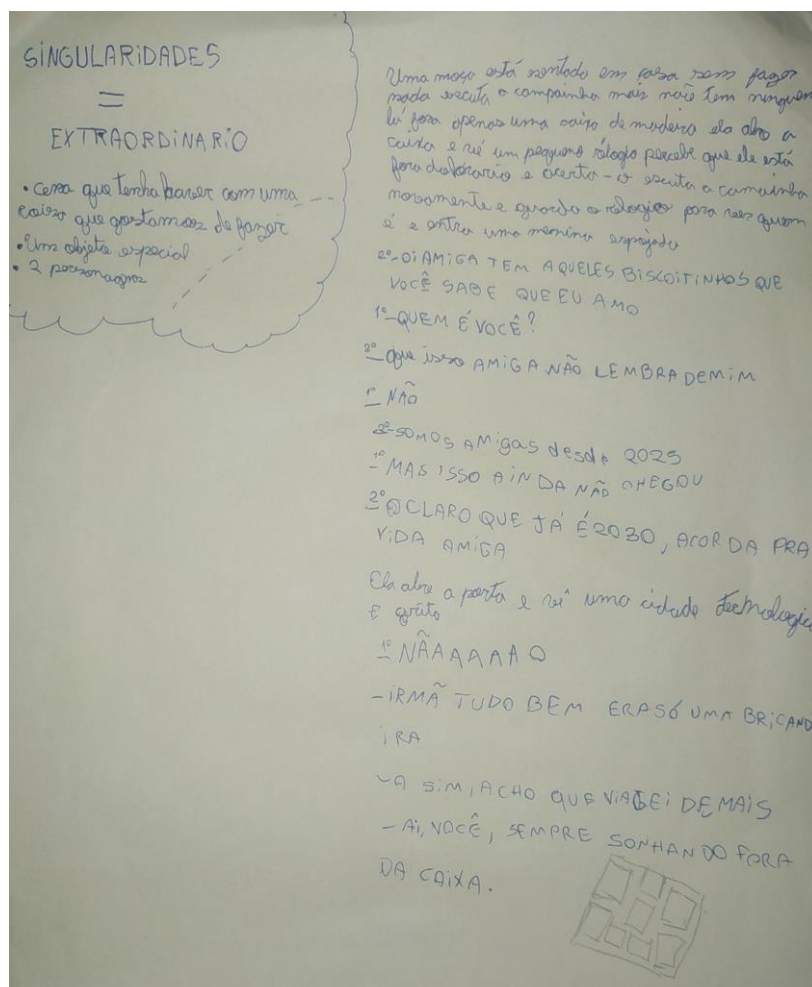 SINGULARIDADES
=
EXTRAORDINARIO
• cena que tenha haver com uma
coisa que gostamos de fazer
• Um objeto especial
• 2 personagens
Uma moça está sentada em casa sem fazer
nada escuta a campainha mais não tem ninguem
lá fora apenas uma caixa de madeira ela abre a
caixa e vê um pequeno rélogio percebe que ele está
fora do horario e acerta-o escuta a camainha
novamente e guarda o relogio para ver quem
é e entra uma menina
2º-OI AMIGA TEM AQUELES BISCOITINHOS QUE
VOCÊ SABE QUE EU AMO
1º-QUEM É VOCÊ?
2º-que isso AMIGA NÃO LEMBRA DE MIM
1º-NÃO
2º-SOMOS AMIGAS desde 2025
1º-MAS ISSO AINDA NÃO CHEGOU
2º CLARO QUE JÁ É 2030, ACORDA PRA
VIDA AMIGA
Ela abre a porta e vê uma cidade tecnologica
E grita
1º NÃAAAAAO
-IRMÃ TUDO BEM ERA SÓ UMA BRICAND
IRA
-A SIM, ACHO QUE VIAGEI DEMAIS
-AI, VOCÊ, SEMPRE SONHANDO FORA
DA CAIXA.